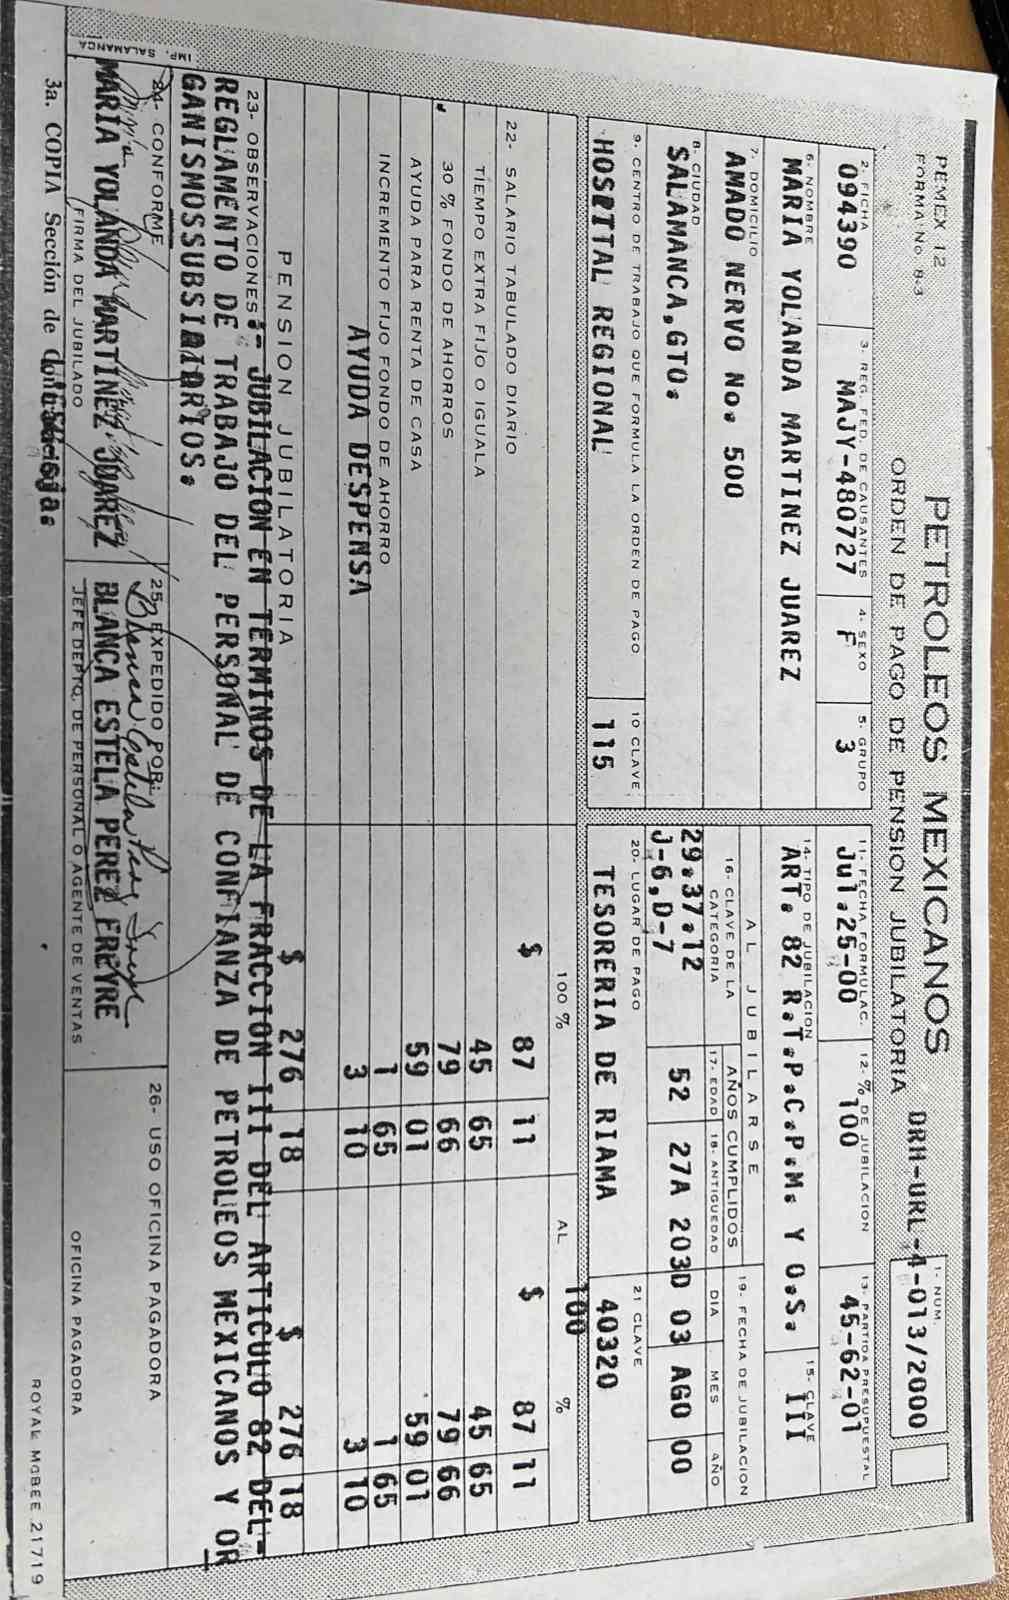 PEMEX 12
FORMA No 8-3
PETROLEOS MEXICANOS
ORDEN DE PAGO DE PENSION JUBILATORIA
1- NUM.
DRH-URL-4-013/2000
2. FICHA
094390
3. REG. FED. DE CAUSANTES
MAJY-480727
4- SEXO
F
5. GRUPO
3
6. NOMBRE
MARIA YOLANDA MARTINEZ JUAREZ
7. DOMICILIO
AMADO NERVO No. 500
8. CIUDAD
SALAMANCA,GTO.
9. CENTRO DE TRABAJO QUE FORMULA LA ORDEN DE PAGO
HOSPITAL REGIONAL
10 CLAVE
115
11- FECHA FORMULAC.
Jul.25-00
12- % DE JUBILACION
100
13- PARTIDA PRESUPUESTAL
45-62-01
14- TIPO DE JUBILACION
ART. 82 R.T.P.C.P.M. Y O.S.
15- CLAVE
III
AL JUBILARSE
16- CLAVE DE LA CATEGORIA
29.37.12
J-6,D-7
AÑOS CUMPLIDOS
17- EDAD
52
18- ANTIGUEDAD
27A 203D
19- FECHA DE JUBILACION
DIA MES AÑO
03 AGO 00
20- LUGAR DE PAGO
TESORERIA DE RIAMA
21 CLAVE
40320
100 % AL 100 %
22- SALARIO TABULADO DIARIO $ 87 11 $ 87 11
TIEMPO EXTRA FIJO O IGUALA 45 65 45 65
30 % FONDO DE AHORROS 79 66 79 66
AYUDA PARA RENTA DE CASA 59 01 59 01
INCREMENTO FIJO FONDO DE AHORRO 1 65 1 65
AYUDA DESPENSA 3 10 3 10
PENSION JUBILATORIA $ 276 18 $ 276 18
23- OBSERVACIONES:- JUBILACION EN TERMINOS DE LA FRACCION III DEL ARTICULO 82 DEL-
REGLAMENTO DE TRABAJO DEL PERSONAL DE CONFIANZA DE PETROLEOS MEXICANOS Y OR
GANISMOSSUBSIDIARIOS.
24- CONFORME
MARIA YOLANDA MARTINEZ JUAREZ
(FIRMA DEL JUBILADO
25- EXPEDIDO POR:
Blanca Estela Perez Freyre
BLANCA ESTELA PEREZ FREYRE
JEFE DEPTO. DE PERSONAL O AGENTE DE VENTAS
26- USO OFICINA PAGADORA
OFICINA PAGADORA
IMP. SALAMANCA
3a. COPIA Sección de
ROYAL McBEE 21719